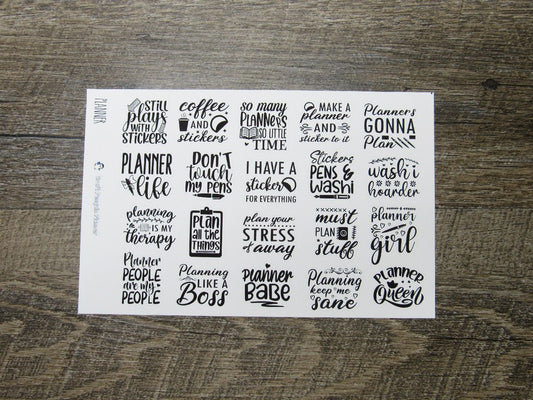 PLANNER
STILL
plays
WITH
STICKERS
coffee
AND
stickers
so many
PLANNERS
SO LITTLE
TIME
MAKE A
planner
AND
sticker to it
Planners
GONNA
Plan
PLANNER
life
DON'T
touch
MY PENS
I HAVE A
sticker
FOR EVERYTHING
Stickers
PENS &
Washi
washi
hoarder
planning
IS MY
therapy
PLAN
all the
THINGS
plan your
STRESS
away
must
PLAN
stuff
planner
girl
Planner
PEOPLE
are my
PEOPLE
Planning
LIKE A
Boss
Planner
BABE
Planning
keep me
sane
PLANNER
Queen